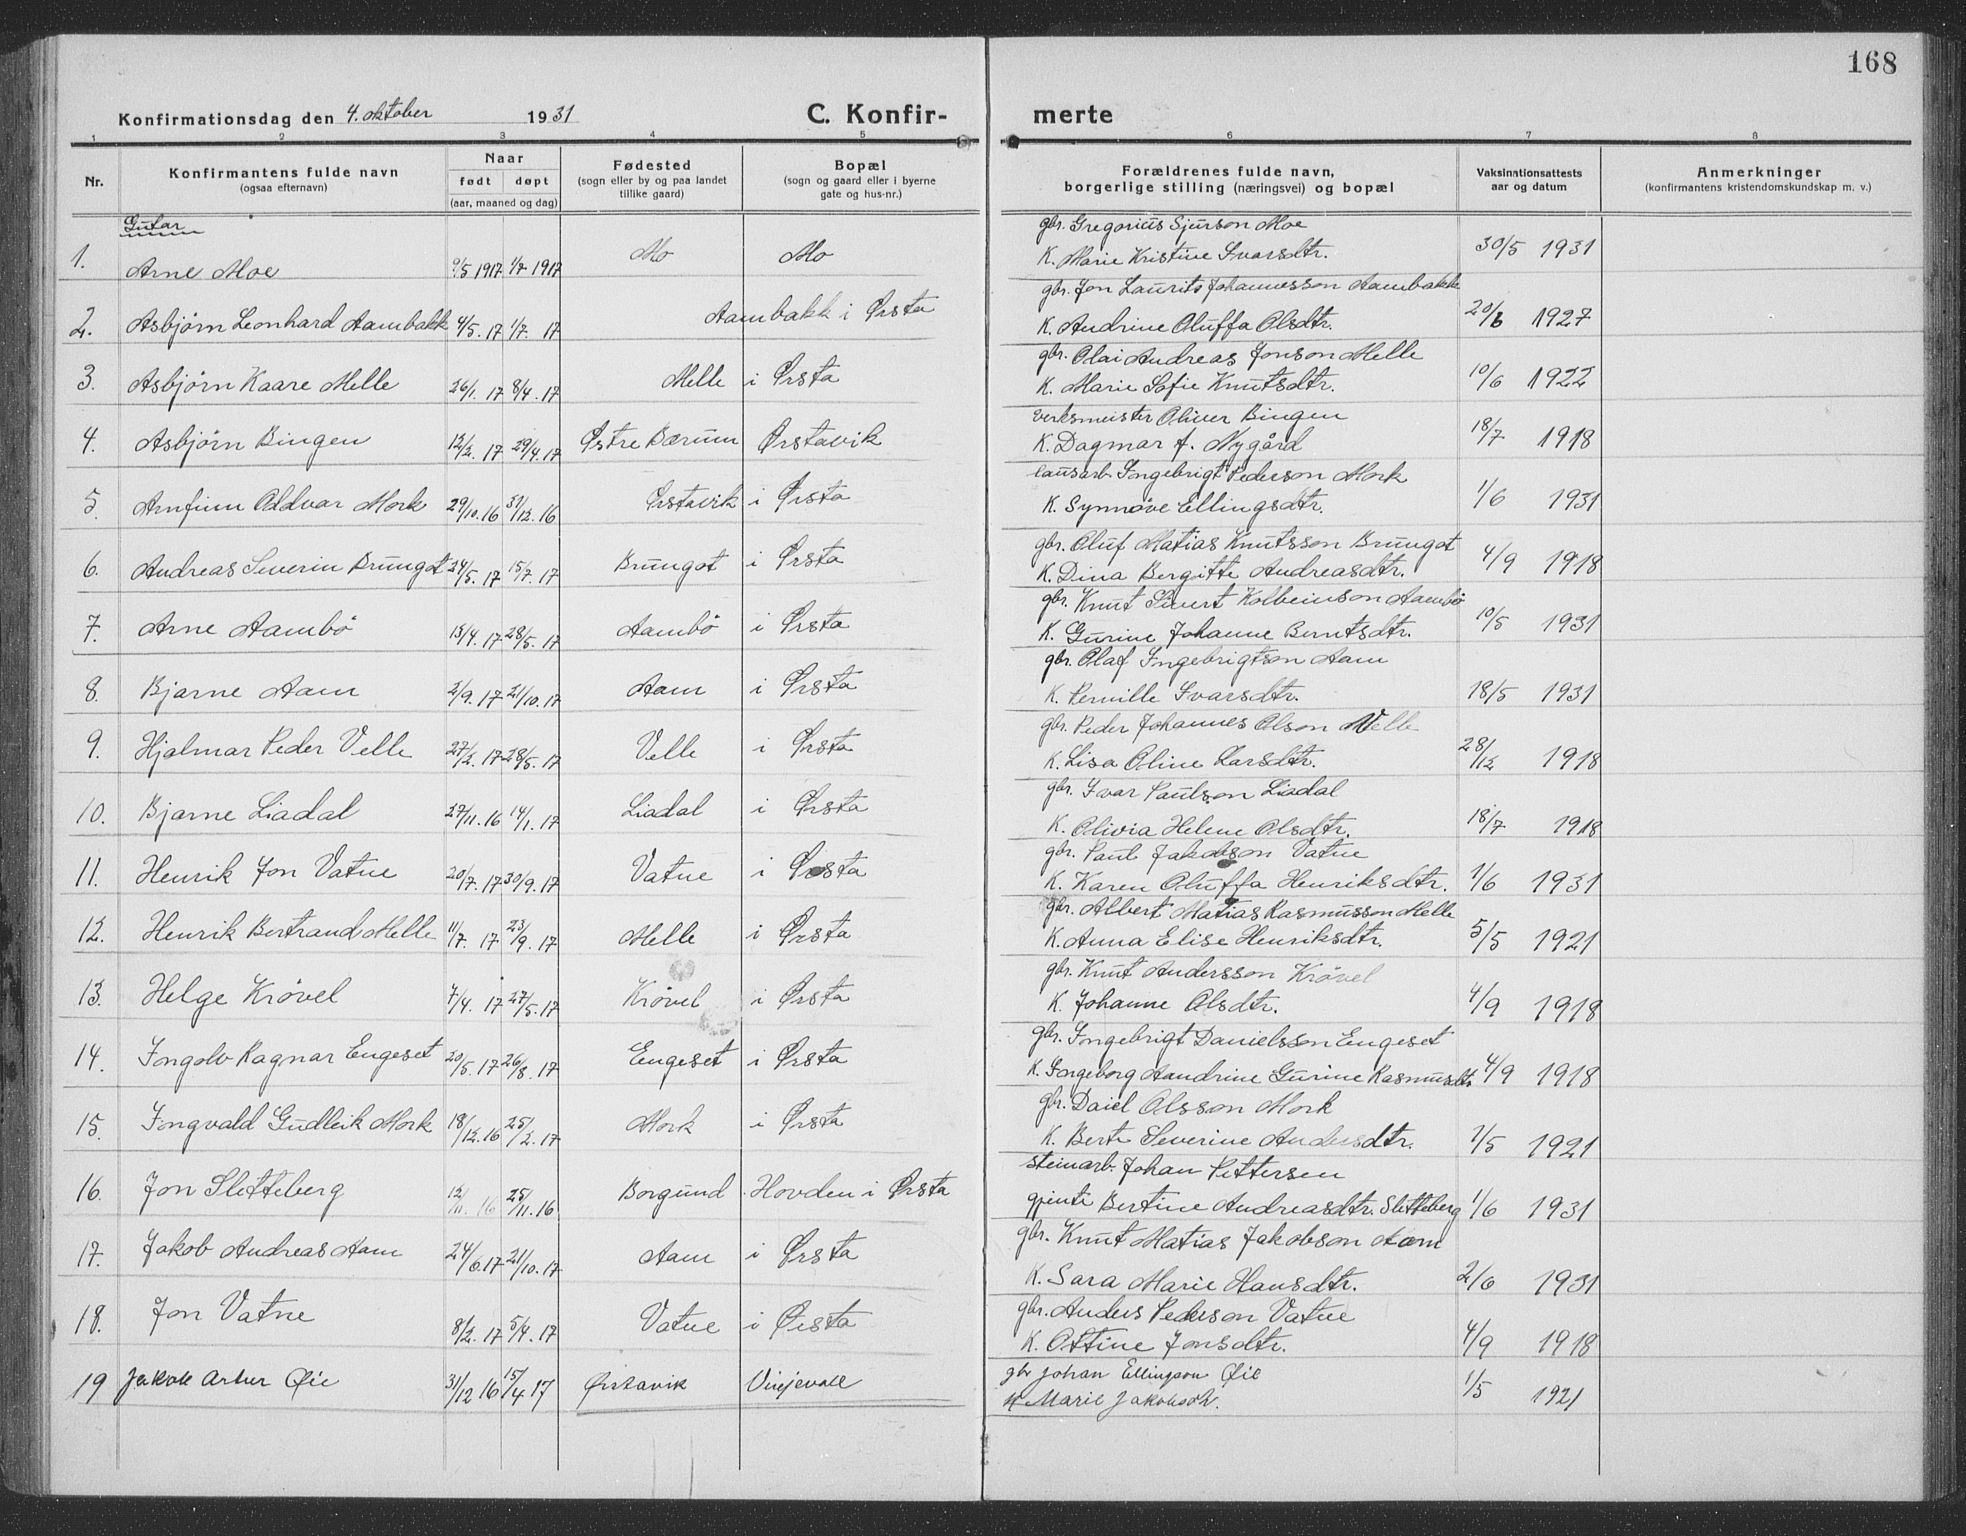 168
Konfirmationsdag den 4. oktober 1931 C. Konfirmerte
1 2 3 4 5 6 7 8
Nr. | Konfirmantens fulde navn (ogsaa efternavn) | Naar født døpt (aar, maaned og dag) | Fødested (sogn eller by og paa landet tillike gaard) | Bopæl (sogn og gaard eller i byerne gate og hus-nr.) | Forældrenes fulde navn, borgerlige stilling (næringsvei) og bopæl | Vaksinationsattests aar og datum | Anmerkninger (konfirmantens kristendomskundskap m. v.)
Gutar
gbr. Gregorius Sjurson Moe
1. Arne Moe 9/5 1917 1/7 1917 Mo Mo K. Marie Kristine Ivarsdtr. 30/5 1931
gbr. Jon Laurits Johannesson Aambakk
2. Asbjørn Leonhard Aambakk 4/5. 17 1/7. 17 Aambakk i Ørsta K. Andrine Oluffa Olsdtr. 20/6 1927
gbr. Olai Andreas Jonson Melle
3. Asbjørn Kaare Melle 26/1. 17 8/4. 17 Melle i Ørsta K. Marie Sofie Knutsdtr. 10/6 1922
verksmeister Oliver Bingen
4. Asbjørn Bingen 12/2. 17 29/4. 17 Østre Bærum Ørstavik K. Dagmar f. Nygård 18/7 1918
lausarb. Ingebrigt Pederson Mork
5. Arnfinn Oddvar Mork 29/10. 16 31/12. 16 Ørstavik i Ørsta K. Synnøve Ellingsdtr. 1/6 1931
gbr. Oluf Matias Knutsson Brungot
6. Andreas Severin Brungot 24/5. 17 15/7. 17 Brungot i Ørsta K. Dina Bergitte Andreasdtr. 4/9 1918
gbr. Knut Sivert Kolbeinson Aambø
7. Arne Aambø 15/4. 17 28/5. 17 Aambø i Ørsta K. Gurine Johanne Berntsdtr. 10/5 1931
gbr. Olaf Ingebrigtson Aam
8. Bjarne Aam 2/9. 17 21/10. 17 Aam i Ørsta K. Pernille Ivarsdtr. 18/5 1931
gbr. Peder Johannes Olson Velle
9. Hjalmar Peder Velle 27/2. 17 28/5. 17 Velle i Ørsta K. Lisa Oline Larsdtr. 28/12 1918
gbr. Ivar Paulson Liadal
10. Bjarne Liadal 27/11. 16 14/1. 17 Liadal i Ørsta K. Olivia Helene Olsdtr. 18/7 1918
gbr. Paul Jakobson Vatne
11. Henrik Jon Vatne 20/7. 17 30/9. 17 Vatne i Ørsta K. Karen Oluffa Henriksdtr. 1/6 1931
gbr. Albert Matias Rasmusson Melle
12. Henrik Bertrand Melle 11/7. 17 23/9. 17 Melle i Ørsta K. Anna Elise Henriksdtr. 5/5 1921
gbr. Knut Andersson Krøvel
13. Helge Krøvel 7/4. 17 27/5. 17 Krøvel i Ørsta K. Johanne Olsdtr. 4/9 1918
gbr. Ingebrigt Danielsson Engeset
14. Ingolv Ragnar Engeset 20/5. 17 26/8. 17 Engeset i Ørsta K. Ingeborg Aandrine Gurine Rasmusdtr 4/9 1918
gbr. Daiel Olsson Mork
15. Ingvald Gudleik Mork 18/12. 16 25/2. 17 Mork i Ørsta K. Berte Severine Andersdtr. 1/5 1921
steinarb. Johan Pettersen
16. Jon Sletteberg 12/11. 16 25/11. 16 Borgund Hovden i Ørsta gjente Bertine Andreasdtr. Sletteberg 1/6 1931
gbr. Knut Matias Jakobson Aam
17. Jakob Andreas Aam 24/6. 17 21/10. 17 Aam i Ørsta K. Sara Marie Hansdtr. 2/6 1931
gbr. Anders Pederson Vatne
18. Jon Vatne 8/2. 17 5/4. 17 Vatne i Ørsta K. Ottine Jonsdtr. 4/9 1918
gbr Johan Ellingson Øie
19 Jakob Artur Øie 31/12 16 15/4 17 Ørstavik Viejevoll K Marie Jakobsdtr. 1/5 1921